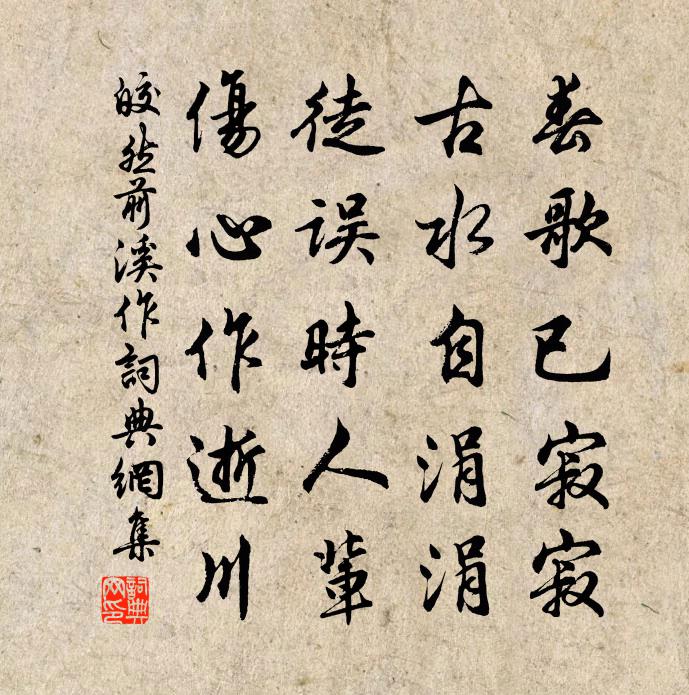 春歌已寂寂
古水自涓涓
徒误時人輩
傷心作逝川
皎然前溪作詞典網集
詞典网印